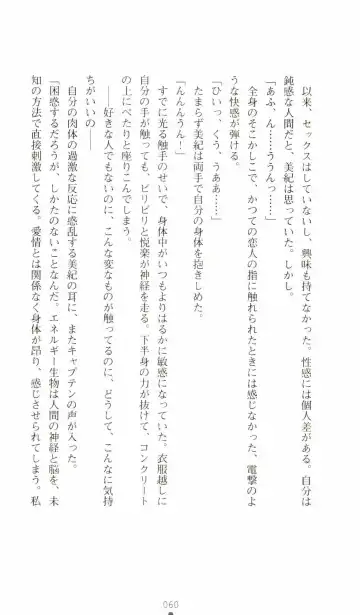 以来、セックスはしていないし、興味も持てなかった。性感には個人差がある。自分は
鈍感な人間だと、美紀は思っていた。しかし。
「あふ、ん……ううんっ……」
全身のそこかしこで、かつての恋人の指に触れられたときには感じなかった、電撃のよ
うな快感が弾ける。
「ひいっ、くう、うああ……」
たまらず美紀は両手で自分の身体を抱きしめた。
「んんんうん！」
すでに光る触手のせいで、身体中がいつもよりはるかに敏感になっていた。衣服越しに
自分の手が触っても、ビリビリと悦楽が神経を走る。下半身の力が抜けて、コンクリート
の上にぺたりと座りこんでしまう。
――好きな人でもないのに、こんな変なものが触ってるのに、どうして、こんなに気持
ちがいいの――
自分の肉体の過激な反応に惑乱する美紀の耳に、またキャプテンの声が入った。
「困惑するだろうが、しかたのないことなんだ。エネルギー生物は人間の神経と脳を、未
知の方法で直接刺激してくる。愛情とは関係なく身体が昂り、感じさせられてしまう。私
060